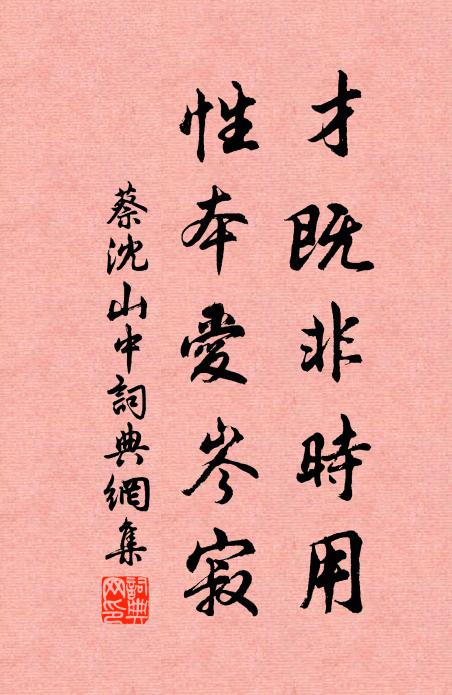 才既非時用
性本愛岑寂
蔡沈山中詞典網集
詞典
网印